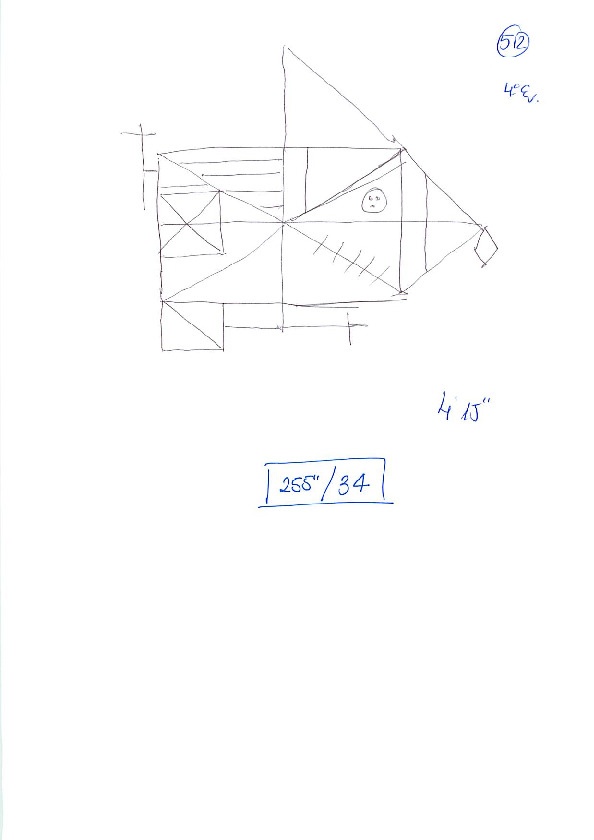 512
4º Ev.
4' 15"
255"/34